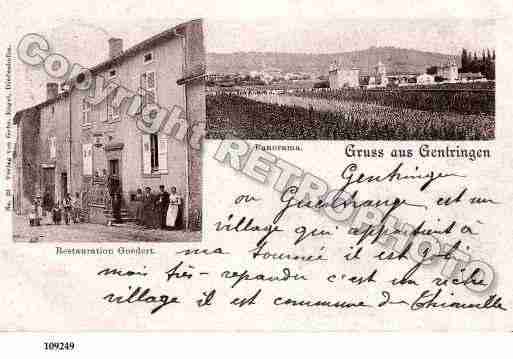 Verlag von Gebr. Engel, Diedenhofen.
No. 20
Panorama.
Gruss aus Gentringen
Restauration Goedert.
Gentringen
ou Guentrange est un
village qui appartient à
ma tournée il est joli
mais très-repandu c'est un riche
village il est commune de Thionville
www.retrophoto.com
109249